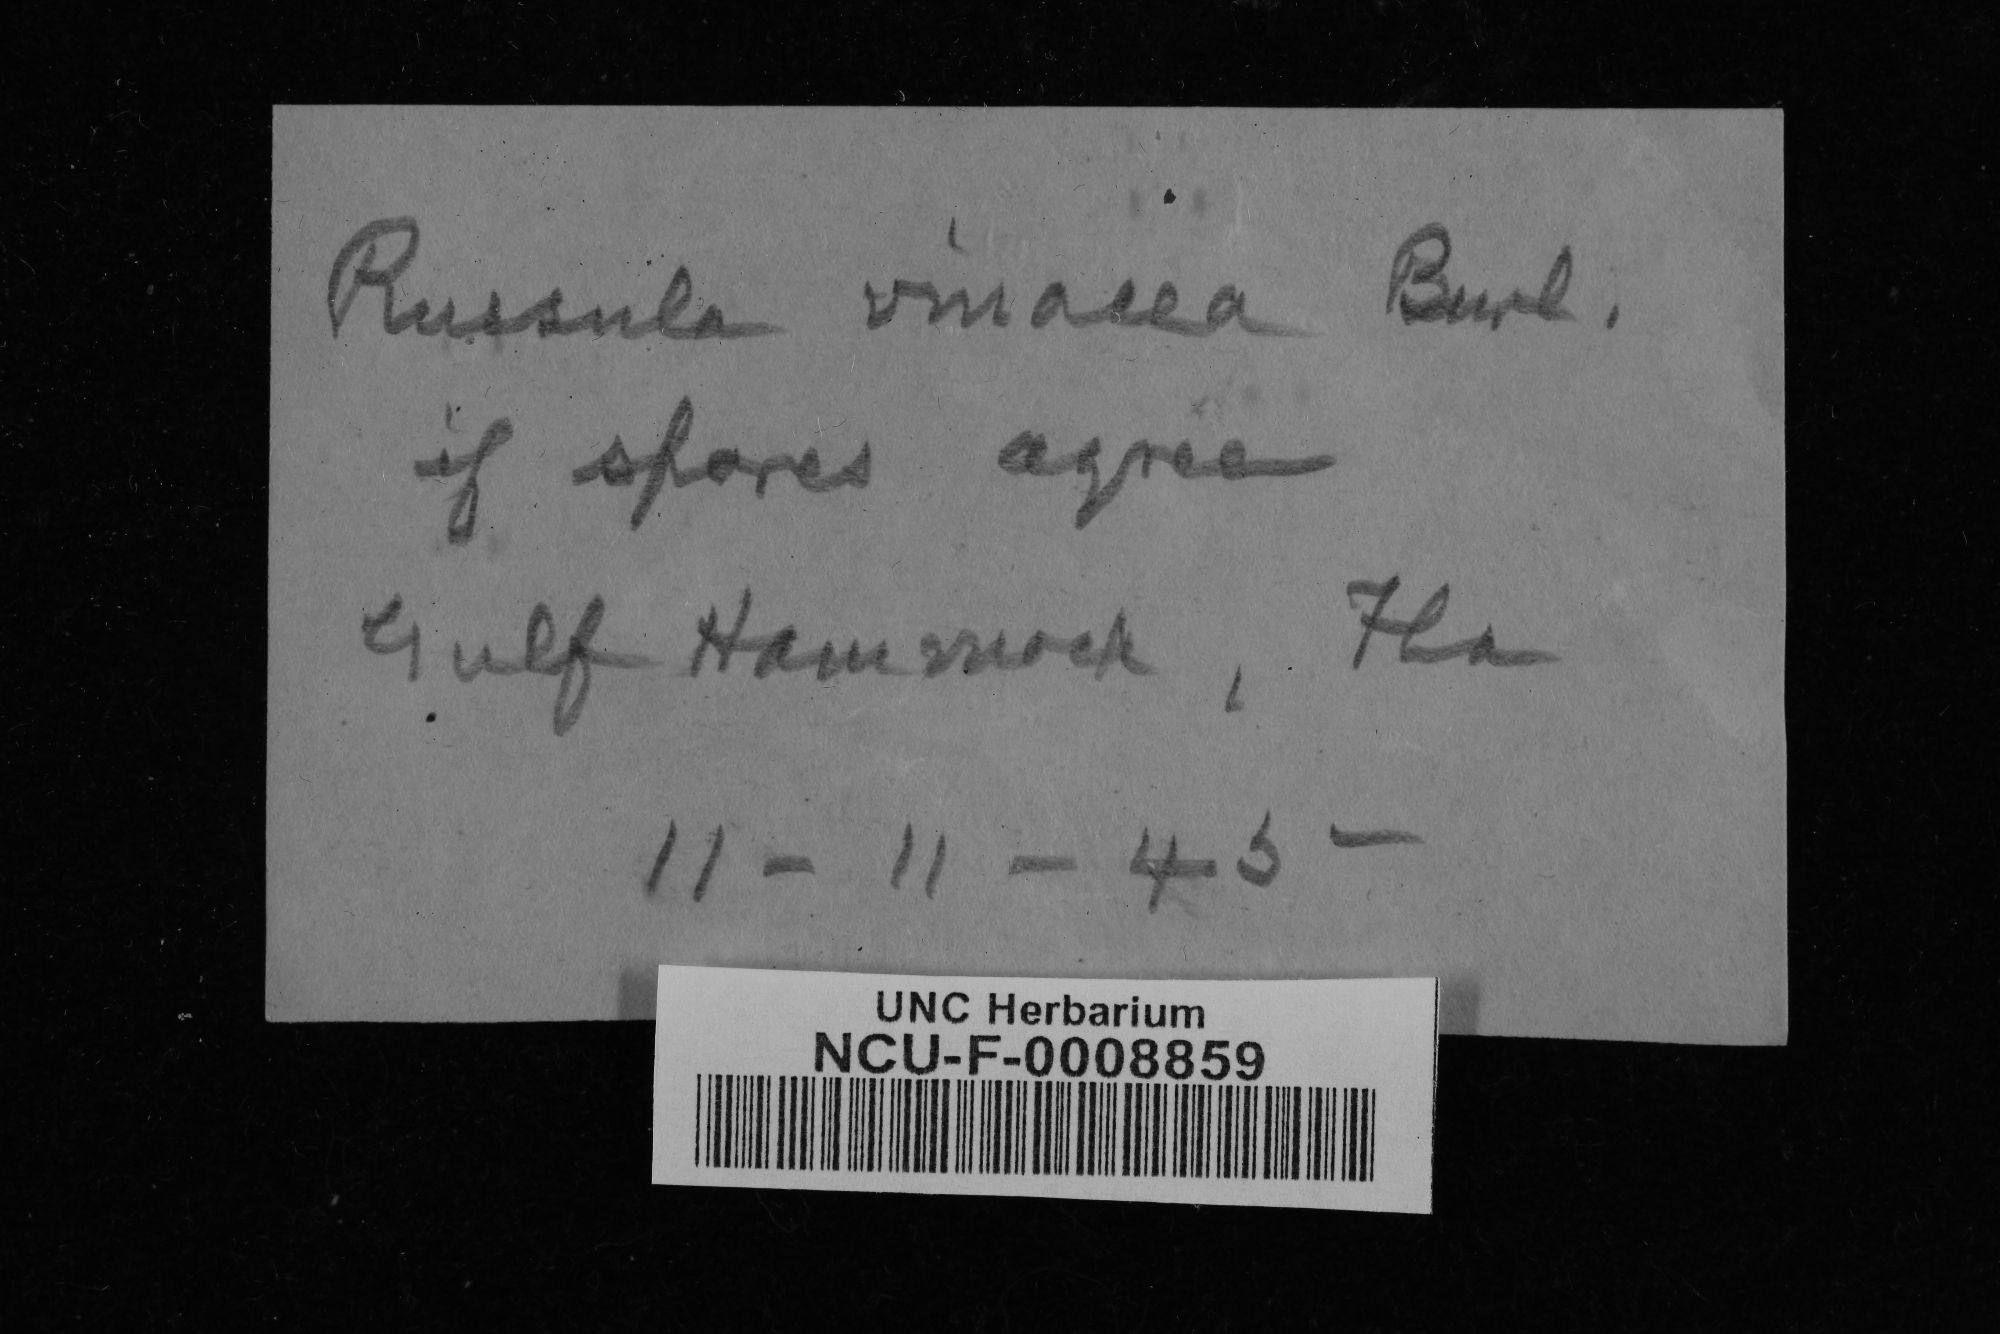 Russula vinacea Burl.
if spores agree
Gulf Hammock, Fla
11-11-45
UNC Herbarium
NCU-F-0008859